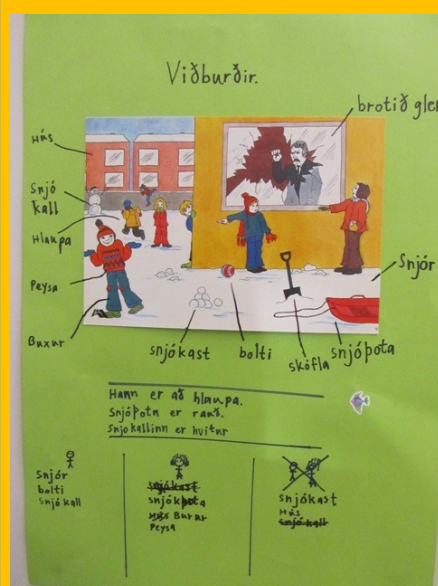 Viðburðir.
brotið gler
Hús
Snjó
kall
Hlaupa
Peysa
Buxur
Snjór
snjókast
bolti
skófla
snjóþota
Hann er að hlaupa.
Snjóþota er rauð.
Snjokallinn er hvítur
Snjór
bolti
Snjókall
snjókast
snjóþota
Hús Buxur
Peysa
snjókast
Hús
Snjókall